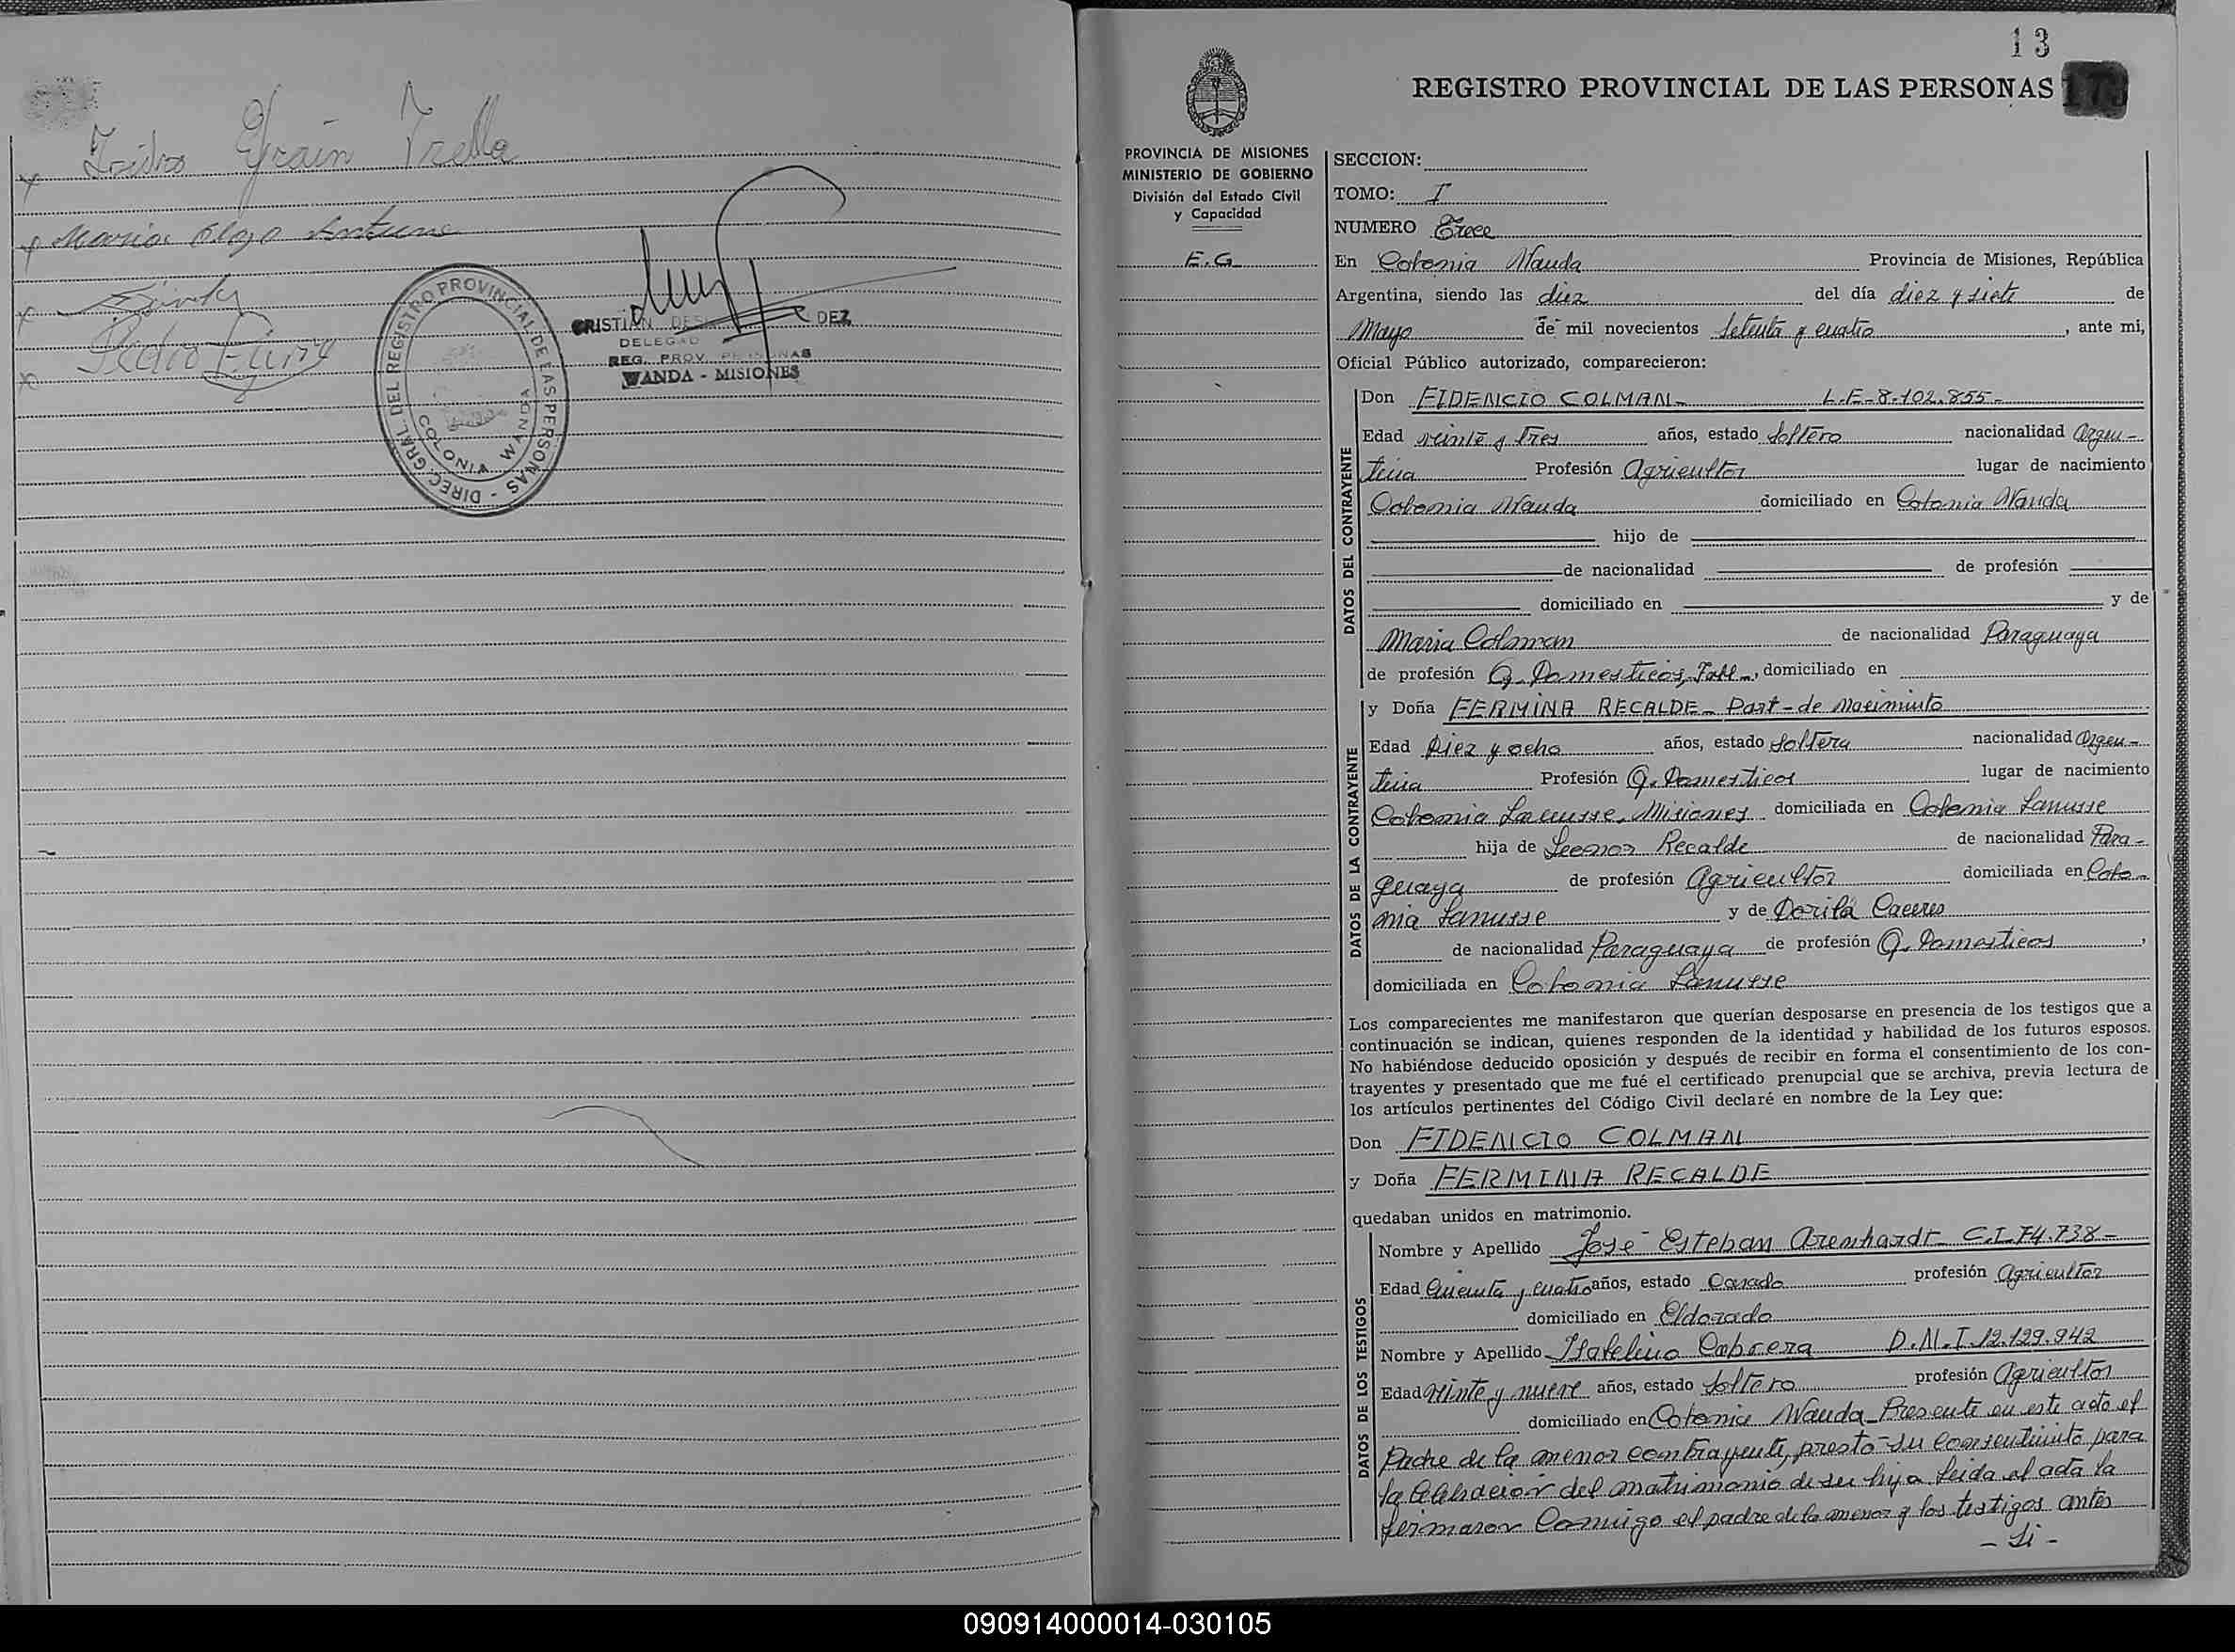 Isidro Efrain Trella
x
x Maria Olga Antune
x
Pedro
x
CRISTIAN DEZ
DELEGAD
REG. PROV. PERSONAS
WANDA - MISIONES
DIREC. GRAL. DEL REGISTRO PROVINCIAL DE LAS PERSONAS -
COLONIA WANDA
13
REGISTRO PROVINCIAL DE LAS PERSONAS
17
PROVINCIA DE MISIONES
MINISTERIO DE GOBIERNO
División del Estado Civil
y Capacidad
E.G
SECCION:
TOMO: I
NUMERO Trece
En Colonia Wanda Provincia de Misiones, República
Argentina, siendo las diez del día diez y siete de
Mayo de mil novecientos setenta y cuatro, ante mi,
Oficial Público autorizado, comparecieron:
DATOS DEL CONTRAYENTE
Don FIDENCIO COLMAN- L.E-8.102.855-
Edad veinte y tres años, estado Soltero nacionalidad Argen-
tina Profesión Agricultor lugar de nacimiento
Colonia Wanda domiciliado en Colonia Wanda
hijo de
de nacionalidad de profesión
domiciliado en y de
Maria Colman de nacionalidad Paraguaya
de profesión Q. Domesticos, Fall-, domiciliado en
DATOS DE LA CONTRAYENTE
y Doña FERMINA RECALDE- Part-de Nacimiento
Edad Diez y ocho años, estado Soltera nacionalidad Argen-
tina Profesión Q. Domesticos lugar de nacimiento
Colonia Lanusse, Misiones domiciliada en Colonia Lanusse
hija de Leonor Recalde de nacionalidad Para-
guaya de profesión Agricultor domiciliada en Colo-
nia Lanusse y de Dorila Caceres
de nacionalidad Paraguaya de profesión Q. Domesticos,
domiciliada en Colonia Lanusse
Los comparecientes me manifestaron que querían desposarse en presencia de los testigos que a
continuación se indican, quienes responden de la identidad y habilidad de los futuros esposos.
No habiéndose deducido oposición y después de recibir en forma el consentimiento de los con-
trayentes y presentado que me fué el certificado prenupcial que se archiva, previa lectura de
los artículos pertinentes del Código Civil declaré en nombre de la Ley que:
Don FIDENCIO COLMAN
y Doña FERMINA RECALDE
quedaban unidos en matrimonio.
DATOS DE LOS TESTIGOS
Nombre y Apellido José Esteban Arenhardt C.I.74.738-
Edad Cuenta y cuatro años, estado Casado profesión Agricultor
domiciliado en Eldorado
Nombre y Apellido Cabrera D.N.I.12.129.942
Edad veinte y nueve años, estado Soltero profesión Agricultor
domiciliado en Colonia Wanda_Presente en este acto el
Padre de la menor contrayente, prestó su consentimiento para
la celebración del matrimonio de su hija Leida el acta la
firmaron Conmigo el padre de la menor y los testigos antes
- Si -
090914000014-030105